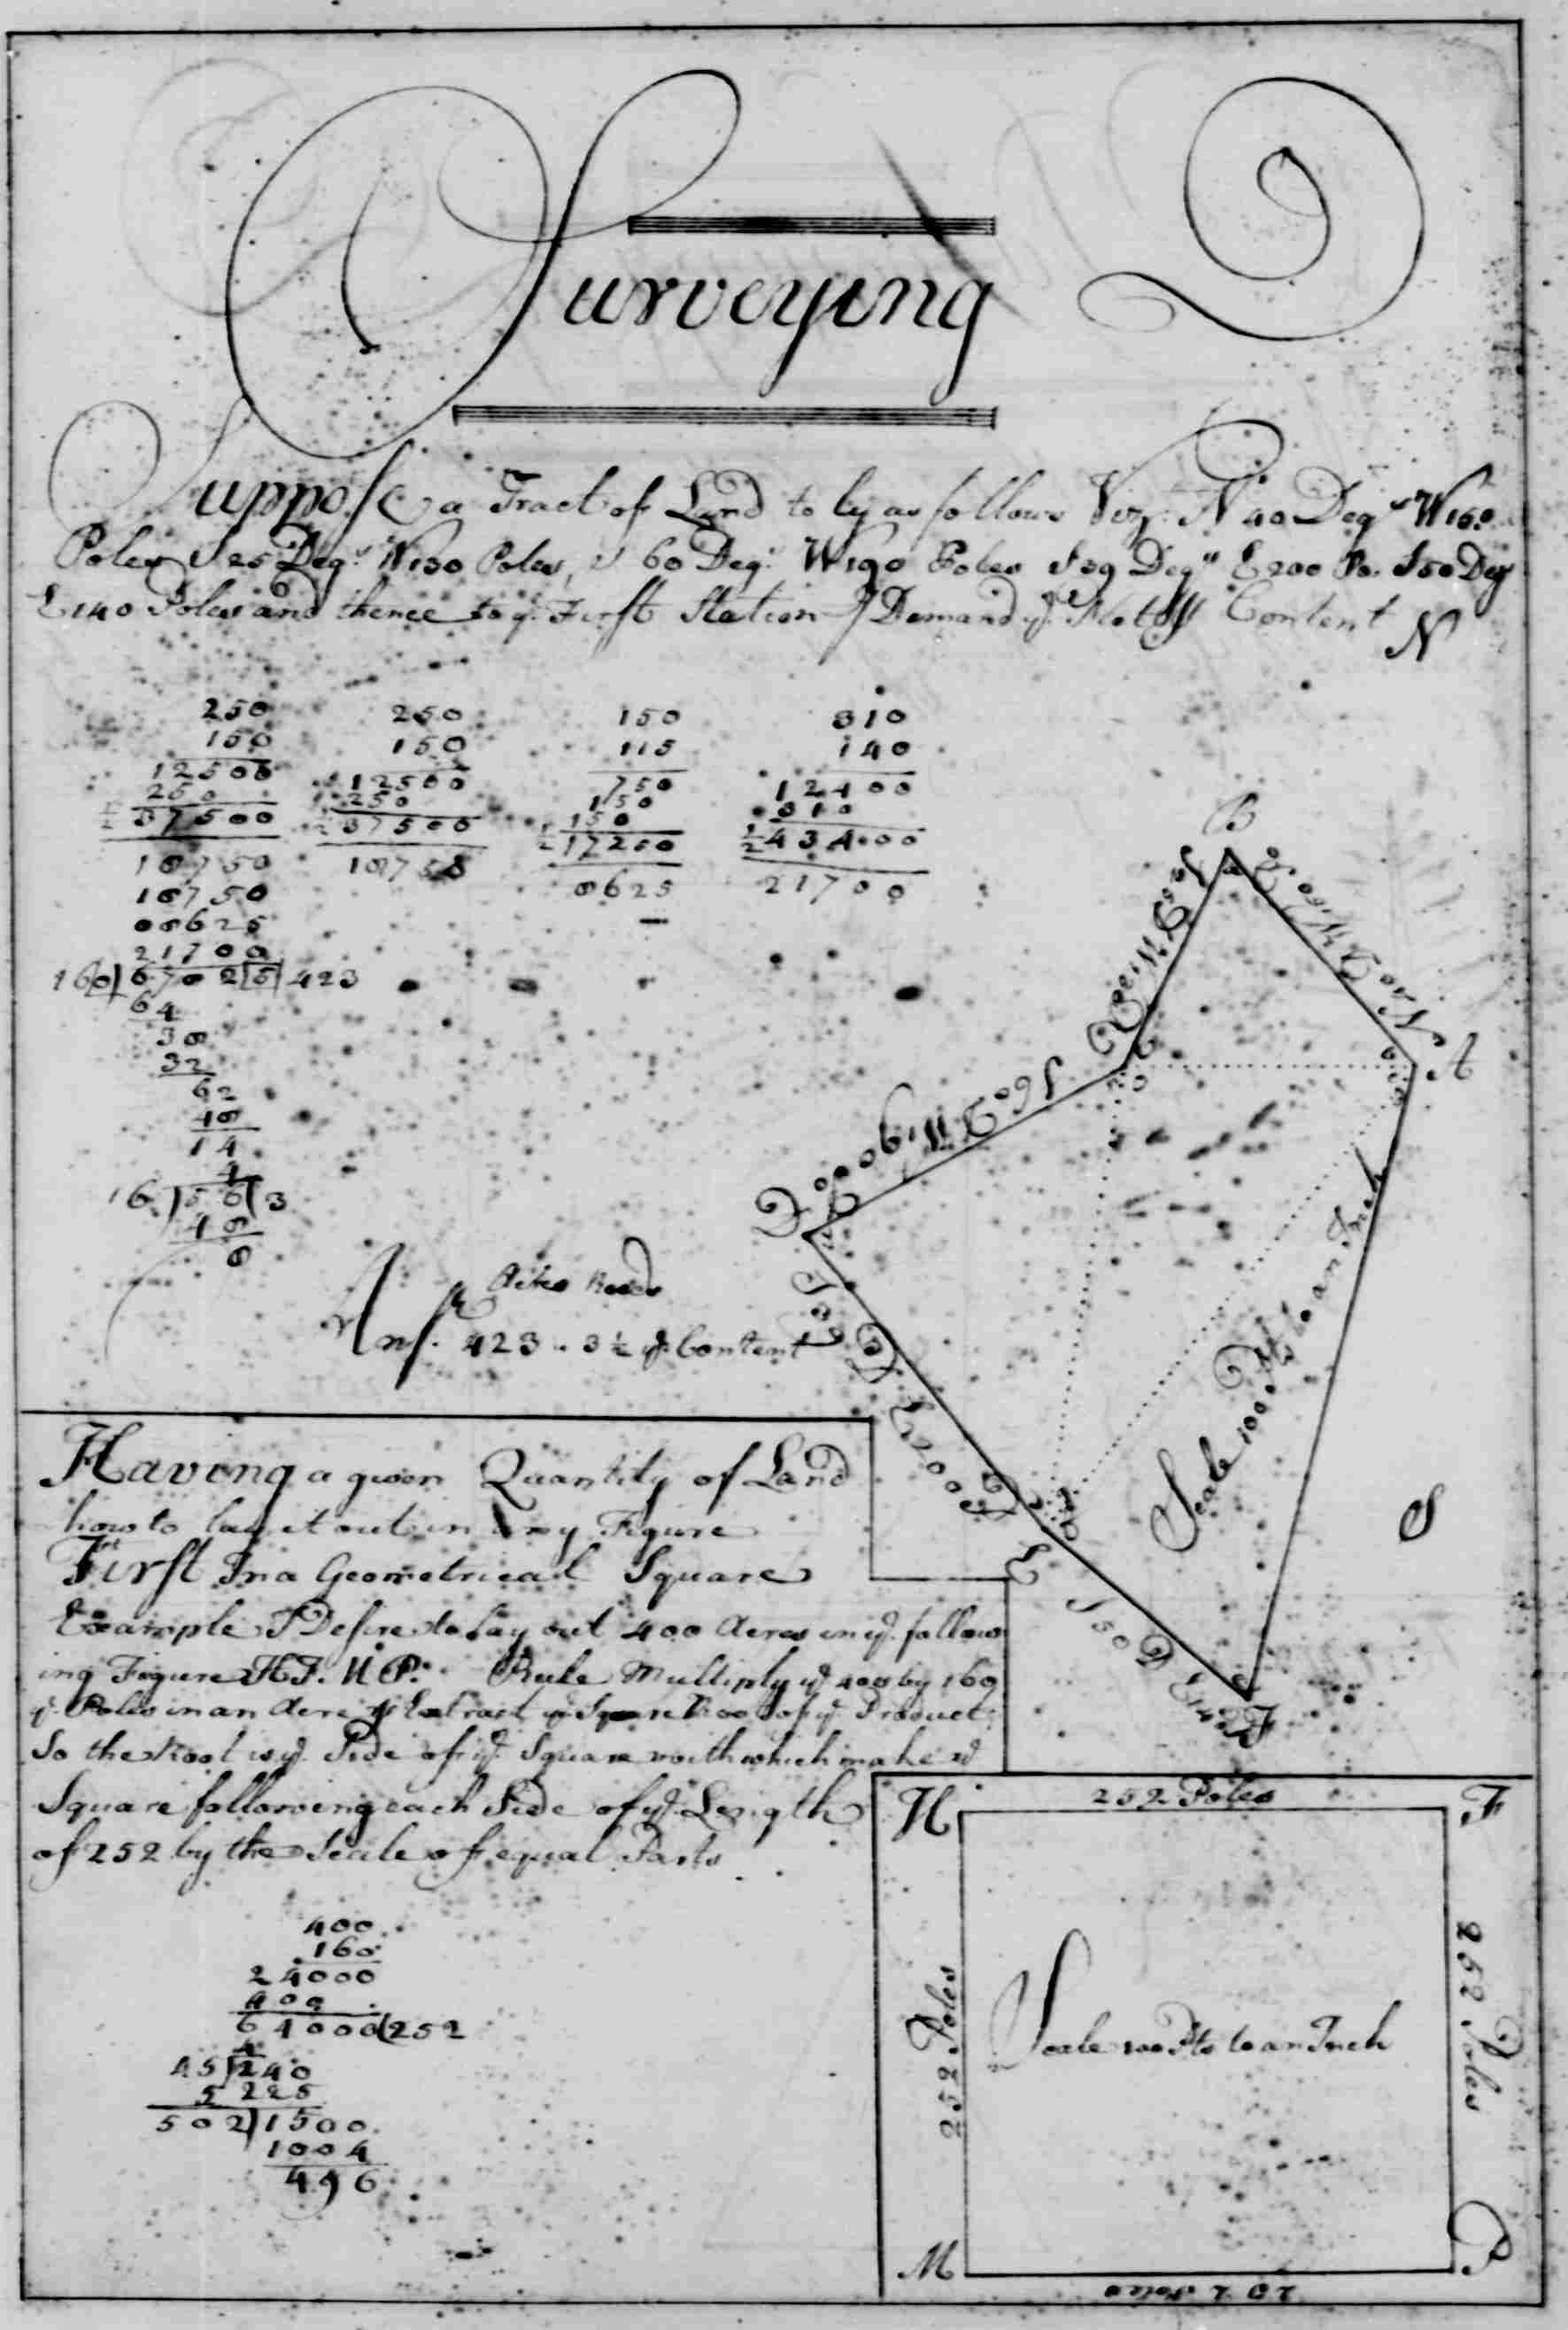 Surveying
Suppose a Tract of Land to ly as follows Viz. N 40 Degs W 150
Poles S 25 Degs W 130 Poles, S 60 Degs W 190 Poles S 39 Degs E 200 Po. S 50 Deg
E 140 Poles and thence to ye First Station I Demand ye Plot & Content
N
250 250 150 310
150 150 115 140
12500 12500 750 12400
250 250 150 310
150
1/2 37500 1/2 37500 1/2 17250 1/2 43400
18750 18750 8625 21700
18750
08625
21700
16|0| 6702|5| 423
64
38
32
62
48
14
4
16) 56 (3
48
8
Acres Roods
Ans. 423 . 3 1/2 ye Content
B
N 40 D W 150 P
S 25 D W 130 P
A
S 60 D W 190
D
S 39 D E 200 P
E
S 50 D E 140 P
F
Scale 100 Pts to an Inch
S
Having a given Quantity of Land
how to lay it out in any Figure
First In a Geometrical Square
Example I Desire to lay out 400 Acres in ye follow
ing Figure H F. M P. Rule Multiply ye 400 by 160
ye Poles in an Acre & Extract ye Square Root of ye Product
So the Root is ye Side of ye Square with which make ye
Square following each Side of ye Length
of 252 by the Scale of equal Parts
400
160
24000
400
64000 (252
4
45) 240
5 225
502) 1500
1004
496
H 252 Poles F
252 Poles
252 Poles
Scale 100 Pts to an Inch
M P
252 Poles